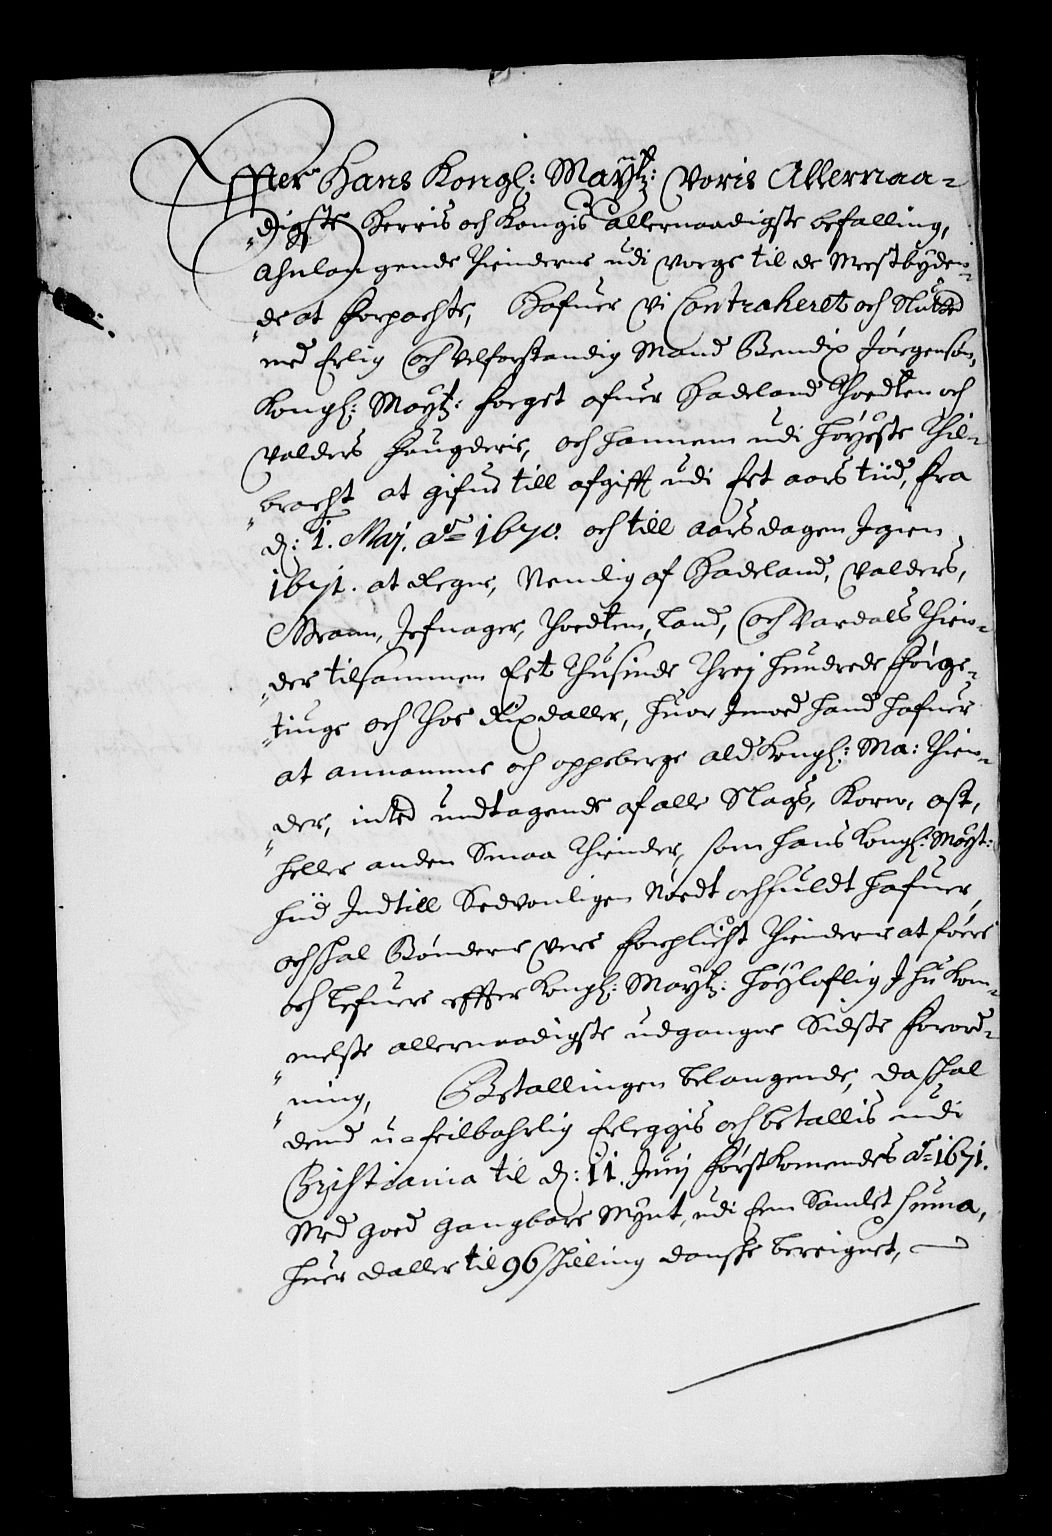 Effter Hans Kongl: Mayt: Voris Allernaa-
digste Herris och Kongis allernaadigste befalling,
Anlangende Thienderne udi Norge til de Meestbyden-
de at forpachte, Hafuer vi Contraheret och Slutted
med Erlig och Velforstandig Mand Bendix Jørgensøn,
Kongl: Mayt: foeget ofuer Hadeland Thoedten och
Valders fougderie, och hannem udi høyeste Thil-
bracht at gifue till afgifft udi Eet aars tiid, fra
d: 1. Maj. Ao 1670. och till aarsdagen Igien
1671. at Regne, Nemblig af Hadeland, Valders,
Braan, Jefnager, Thoedten, Land, och Vardals Thien-
der tilsammen Eet Thusinde Threj hundrede förge-
tiuge och Thoe Rixdaller, huor Imod hand hafuer
at annamme och oppeberge ald Kongl: Ma: Thien-
der, inted undtagende af alle Slags, Korn, ost,
heller anden Smaa Thiender, som hans Kongl: Mayt:
hid Indtill Sedvonligen Nødt och fuldt hafuer,
och skal Bønderne vere forplicht Thienderne at føere
och lefuere effter Kongl: Mayt: høyloflig Ihukom-
melse allernaadigste udgangne Sidste forord-
ning, Betallingen belangende, da skal
dend u-feilbahrlig Erleggis och betallis udi
Christiania til d: 11. Junij först komendes Ao 1671.
Med goed gangbare Mynt, udi Een Samlet Suma,
huer daller til 96 skilling danske bereignet,